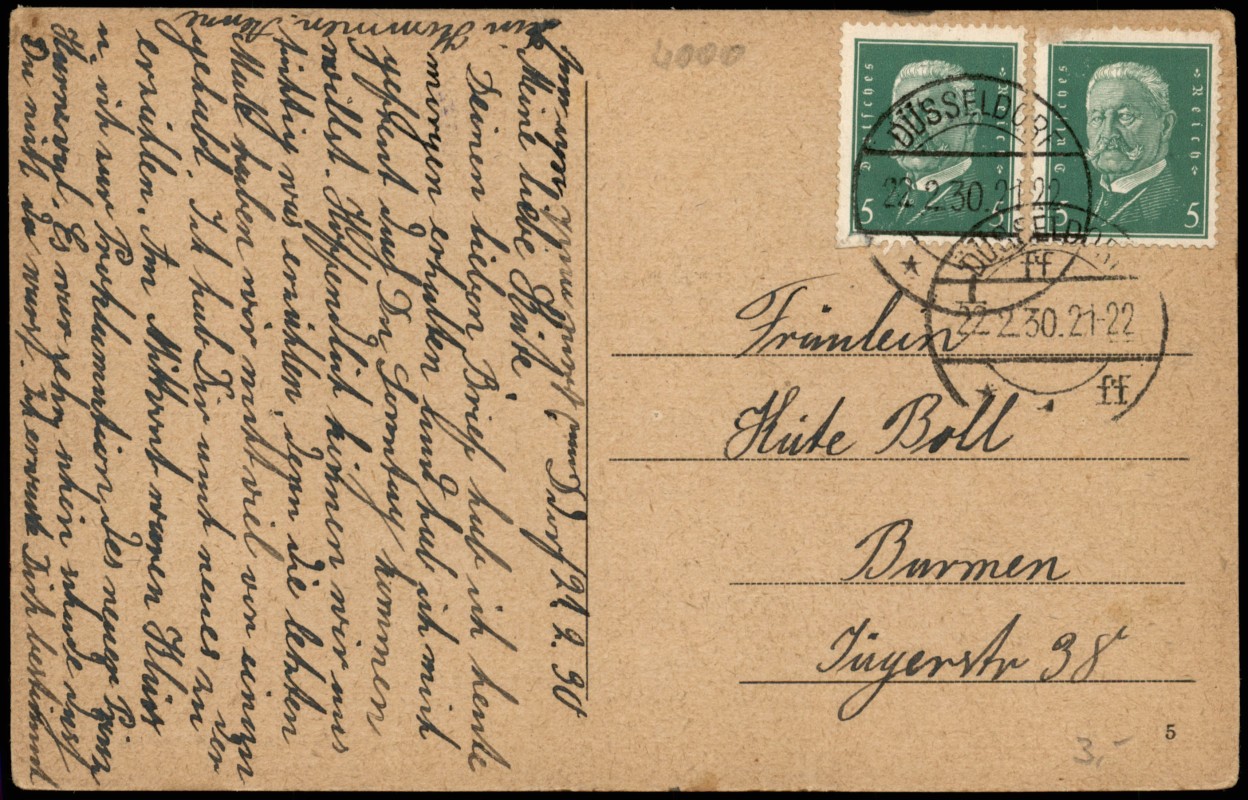 Deutsches Reich
5
5
Deutsches Reich
5
5
DÜSSELDORF
22.2.30.21-22
ff
DÜSSELDORF
1
22.2.30.21-22
ff
4000
Fräulein
Käte Boll
Barmen
Jägerstr 38
5
3,-
D.dorf 22. 2. 30
Meine liebe Käte
Deinen lieben Brief hab ich heute
morgen erhalten und hab ich mich
gefreut das Du Sonntag kommen
willst. Hoffentlich können wir uns
tüchtig was erzählen, denn die letzten
Male haben wir nicht viel von einander
gehabt. Ich hab Dir neues zu
erzählen. Am waren
u ich zur Proklamation des neuen Prinz
Karneval. Es war sehr schön schade dass
Du nicht da warst. Ich erwarte Dich bestimmt
Kommen. Aenne